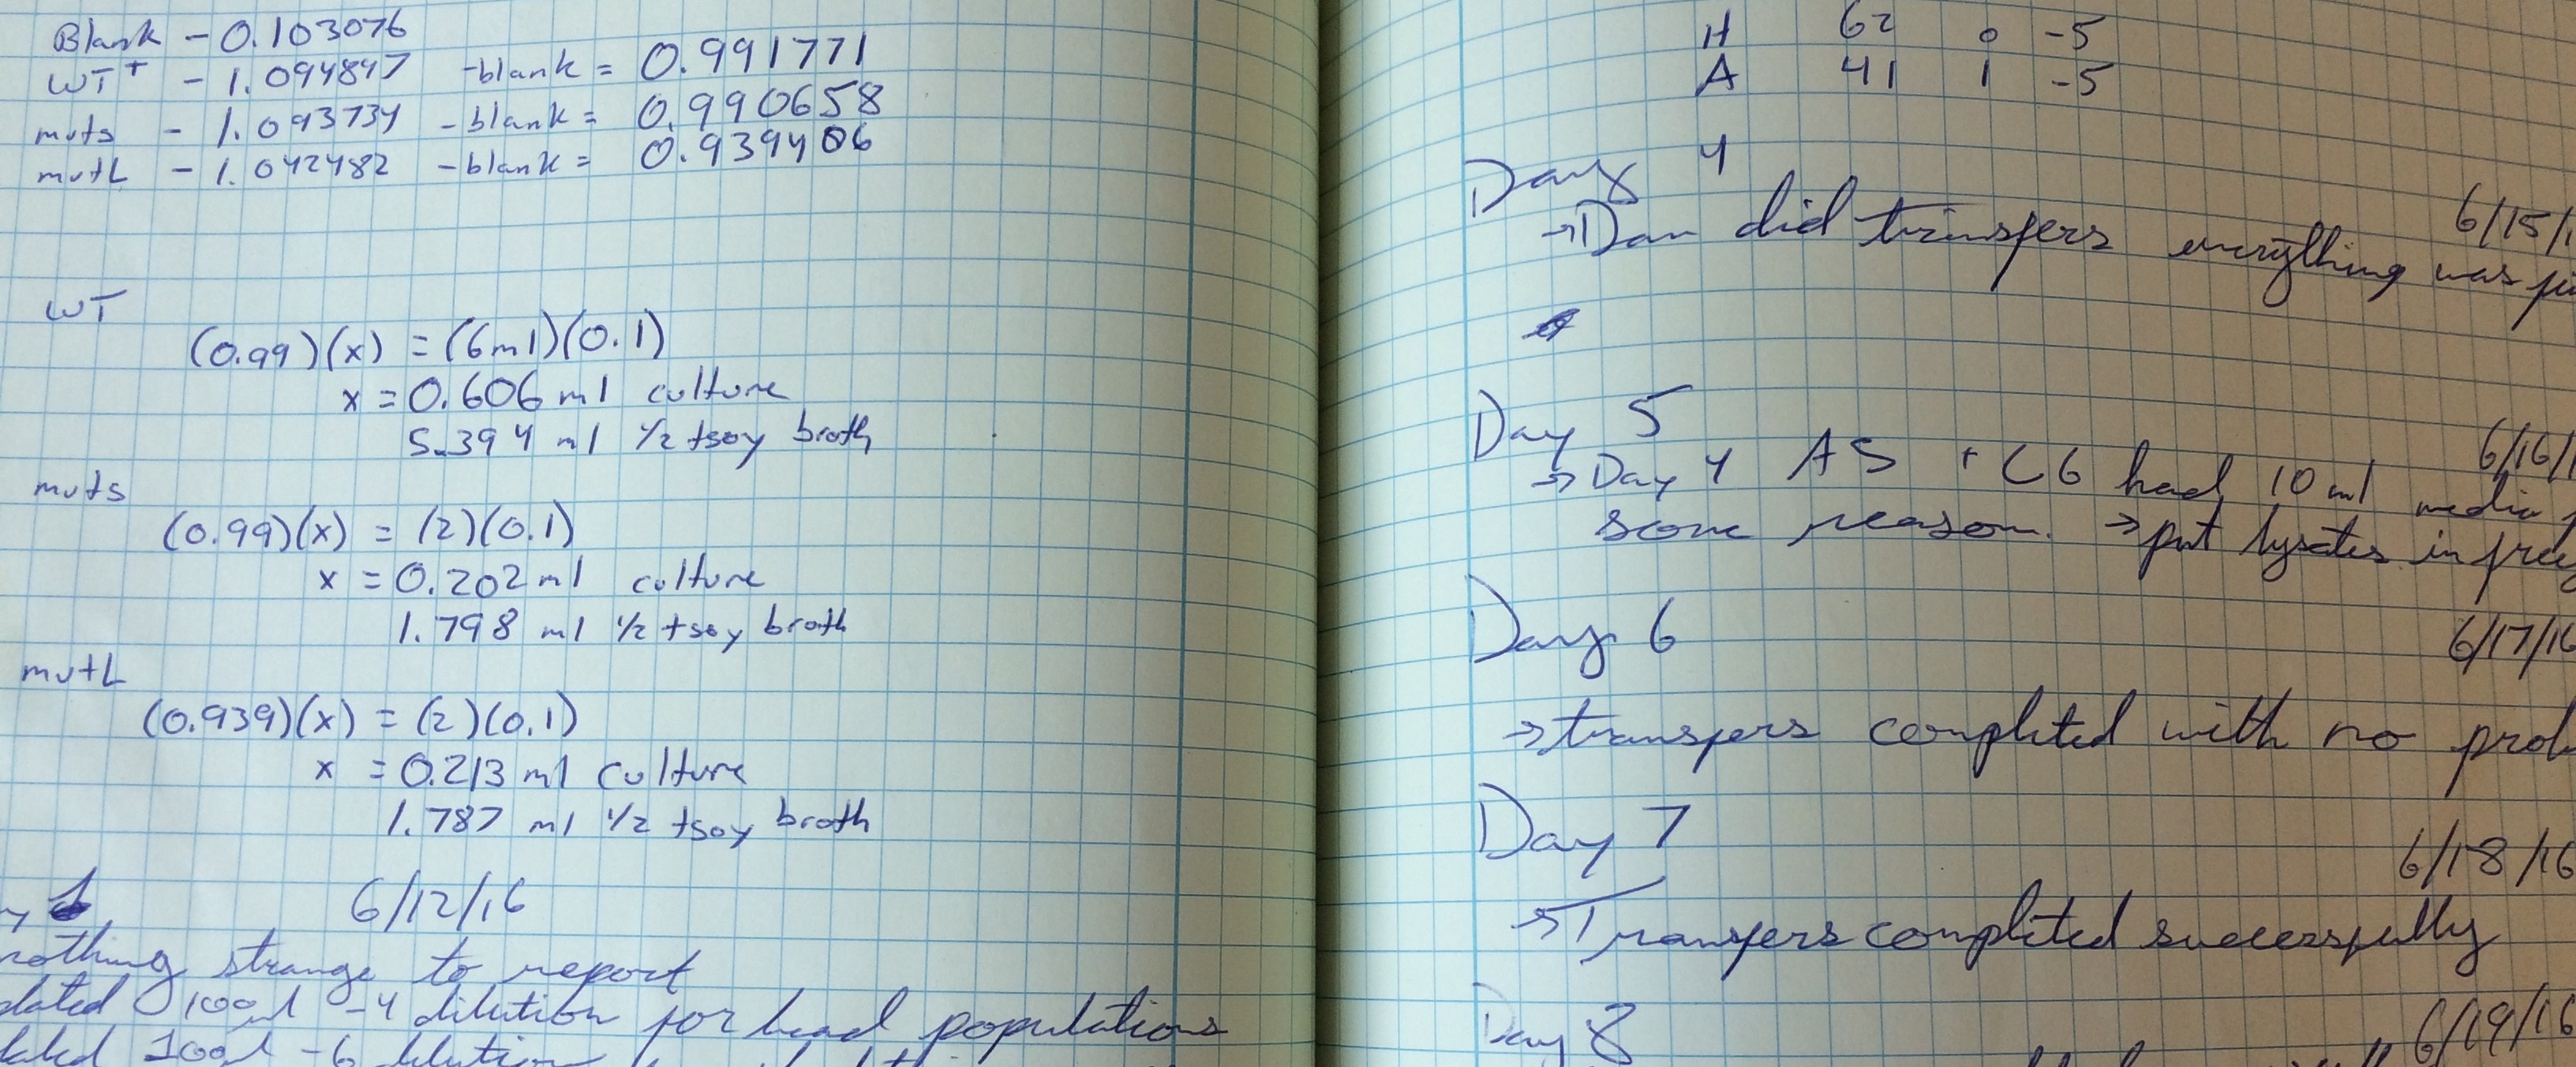 Blank - 0.103076
WT+ - 1.094847 -blank = 0.991771
muts - 1.093734 -blank = 0.990658
mutL - 1.042482 -blank = 0.939406
WT
(0.99)(x) = (6ml)(0.1)
x = 0.606 ml culture
5.394 ml 1/2 tsoy broth
muts
(0.99)(x) = (2)(0.1)
x = 0.202 ml culture
1.798 ml 1/2 tsoy broth
mutL
(0.939)(x) = (2)(0.1)
x = 0.213 ml culture
1.787 ml 1/2 tsoy broth
6/12/16
nothing strange to report
100ul -4 dilution for bead populations
100ul -6 dilution
H 62 0 -5
A 41 1 -5
Day 4
6/15/1
→ Dan did transfers everything was
Day 5
6/16/1
→ Day 4 A5 + C6 had 10 ml media
some reason. → put lysates in
Day 6
6/17/16
→ transfers completed with no prob
Day 7
6/18/16
→ Transfers completed successfully
Day 8
6/19/16